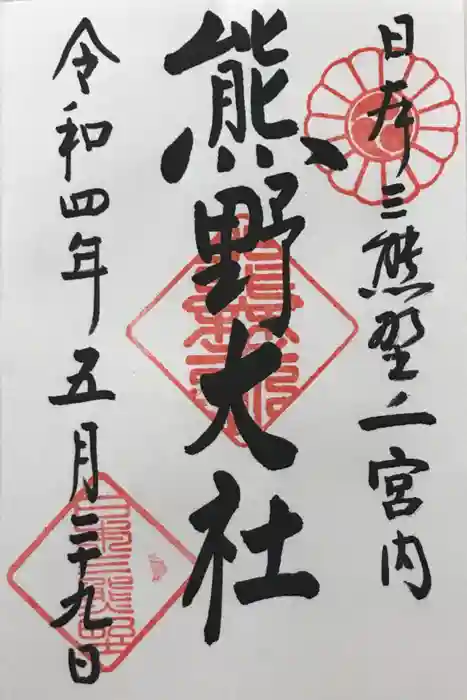 日本三熊埜ノ一宮内
熊野大社
令和四年五月二十九日